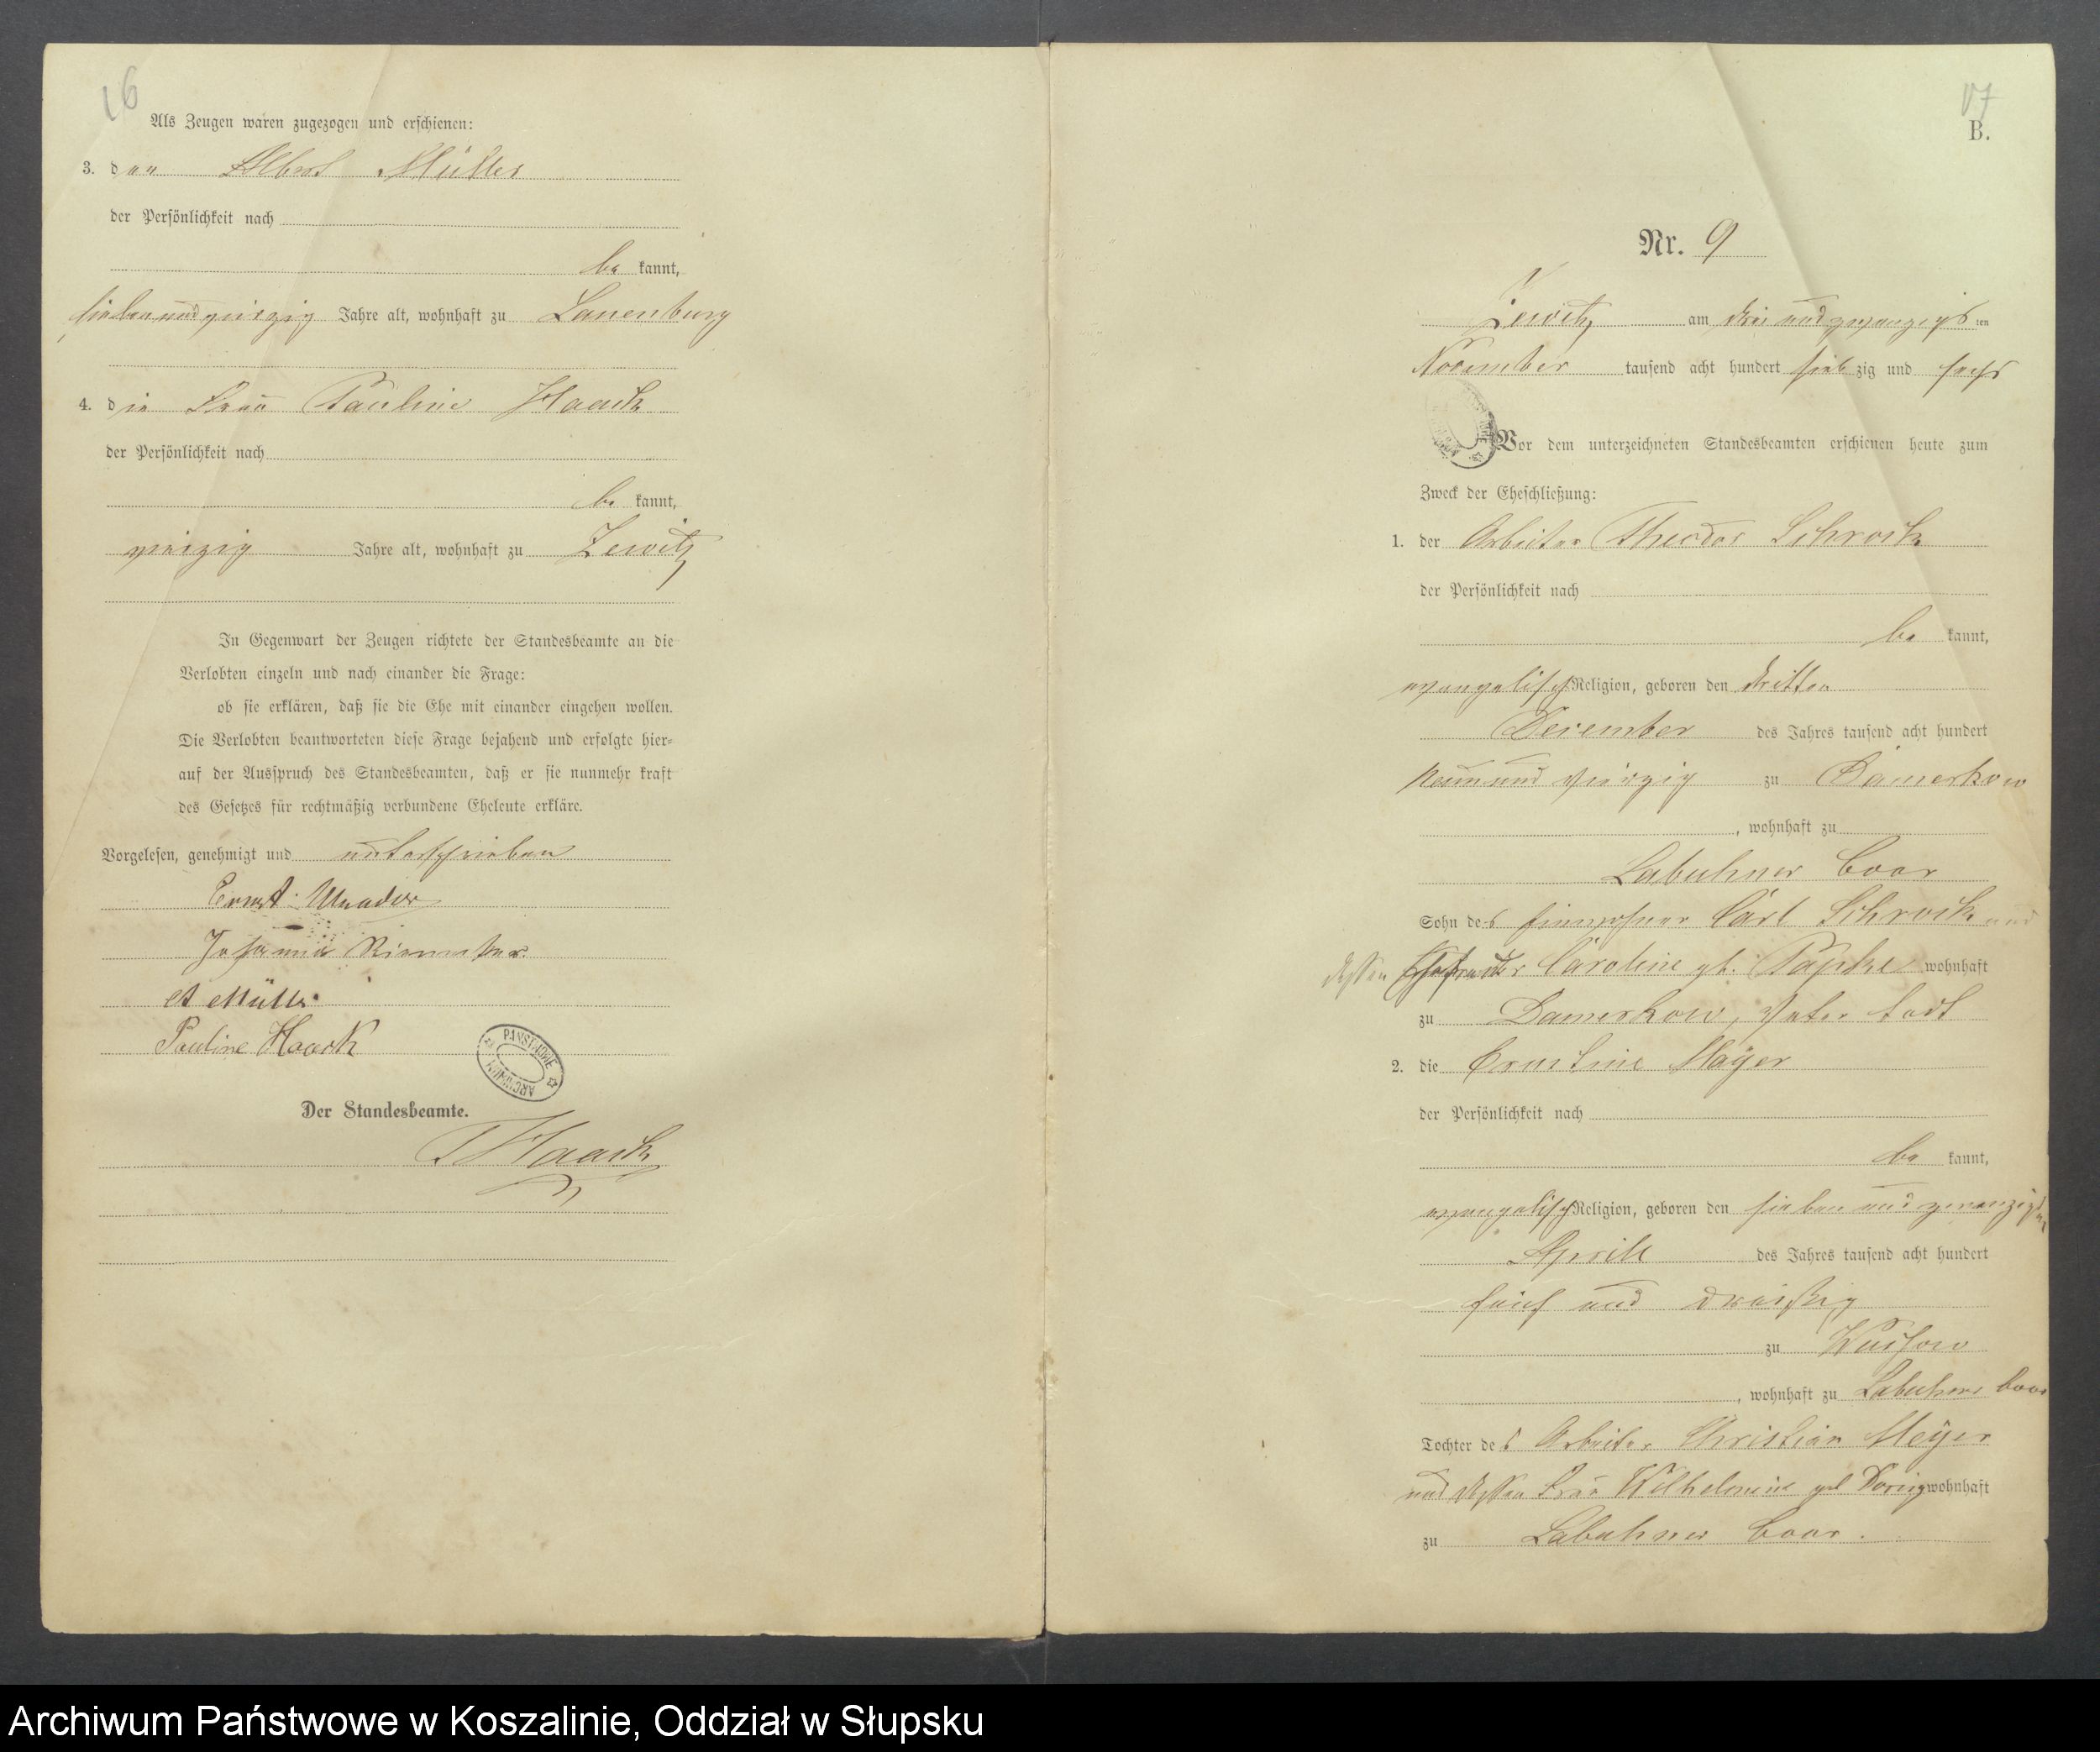 16
Als Zeugen waren zugezogen und erschienen:
3. den Albert Müller
der Persönlichkeit nach
be kannt,
siebenundvierzig Jahre alt, wohnhaft zu Lauenburg
4. die Frau Pauline Haack
der Persönlichkeit nach
be kannt,
vierzig Jahre alt, wohnhaft zu Zewitz
In Gegenwart der Zeugen richtete der Standesbeamte an die
Verlobten einzeln und nach einander die Frage:
ob sie erklären, daß sie die Ehe mit einander eingehen wollen.
Die Verlobten beantworteten diese Frage bejahend und erfolgte hier-
auf der Ausspruch des Standesbeamten, daß er sie nunmehr kraft
des Gesetzes für rechtmäßig verbundene Eheleute erkläre.
Vorgelesen, genehmigt und unterschrieben
Ernst
Johanna
A Müller
Pauline Haack
PANSTWOWE ARCHIWUM
Der Standesbeamte.
Haack
17
B.
Nr. 9
Zewitz am drei und zwanzigsten
November tausend acht hundert siebzig und sechs
Vor dem unterzeichneten Standesbeamten erschienen heute zum
Zweck der Eheschließung:
1. der Arbeiter Theodor Schrock
der Persönlichkeit nach
be kannt,
evangelisch Religion, geboren den dritten
December des Jahres tausend acht hundert
neun und vierzig zu Damerkow
, wohnhaft zu
Labuhner Coor
Sohn des Einwohner Carl Schrock und
dessen Caroline gb. Papke wohnhaft
zu Damerkow, Vater todt
2. die Ernstine Mayer
der Persönlichkeit nach
be kannt,
evangelisch Religion, geboren den sieben und zwanzigsten
Aprill des Jahres tausend acht hundert
fünf und dreißig
zu Wussow
, wohnhaft zu Labuhner Coor
Tochter des Arbeiter Christian Meyer
und dessen Frau Wilhelmine geb wohnhaft
zu Labuhner Coor.
Archiwum Państwowe w Koszalinie, Oddział w Słupsku